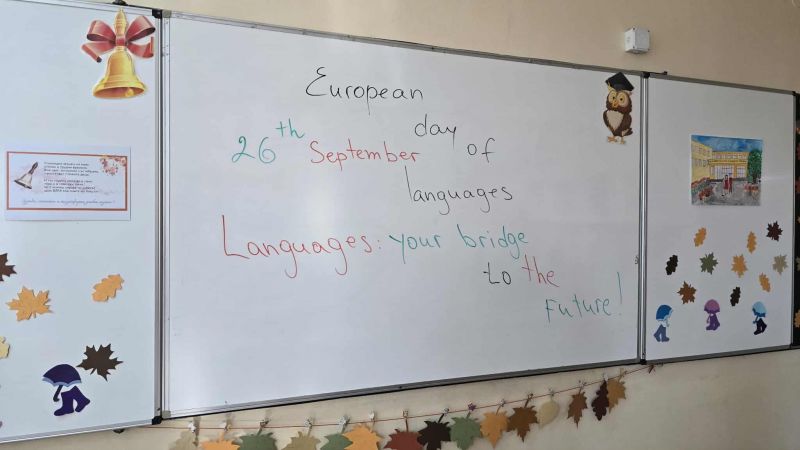 European
day of
languages
26th September
Languages: your bridge
to the
Future!